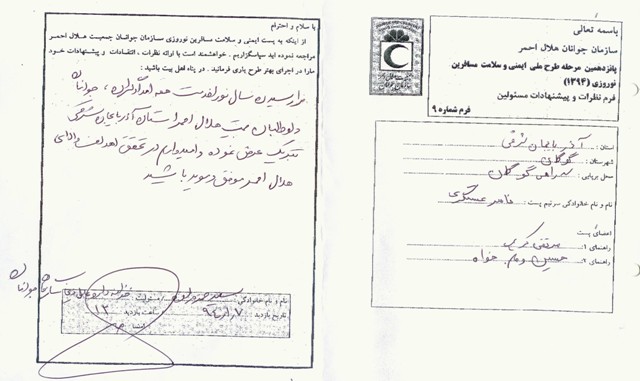 باسمه تعالی
سازمان جوانان هلال احمر
پانزدهمین مرحله طرح ملی ایمنی و سلامت مسافرین
نوروزی (۱۳۹۴)
فرم نظرات و پیشنهادات مسئولین
فرم شماره ۹
استان: آذربایجان شرقی
شهرستان: گوگان
محل برپایی: سه راهی گوگان
نام و نام خانوادگی سرتیم پست: عسگری
اعضای پست
راهنمای ۱:
راهنمای ۲: حسین خواه
با سلام و احترام
از اینکه به پست ایمنی و سلامت مسافرین نوروزی سازمان جوانان جمعیت هلال احمر
مراجعه نموده اید سپاسگزاریم. خواهشمند است با ارائه نظرات، انتقادات و پیشنهادات خود
ما را در اجرای بهتر طرح یاری فرمائید. در پناه اهل بیت باشید:
فرا رسیدن سال نو را خدمت همه امدادگران، جوانان
و داوطلبان جمعیت هلال احمر استان آذربایجان شرقی
تبریک عرض نموده و امیدوارم در تحقق اهداف والای
هلال احمر موفق و موید باشید
نام و نام خانوادگی: مسئولیت:
سازمان جوانان
تاریخ بازدید: ساعت بازدید: ۱۲
امضاء